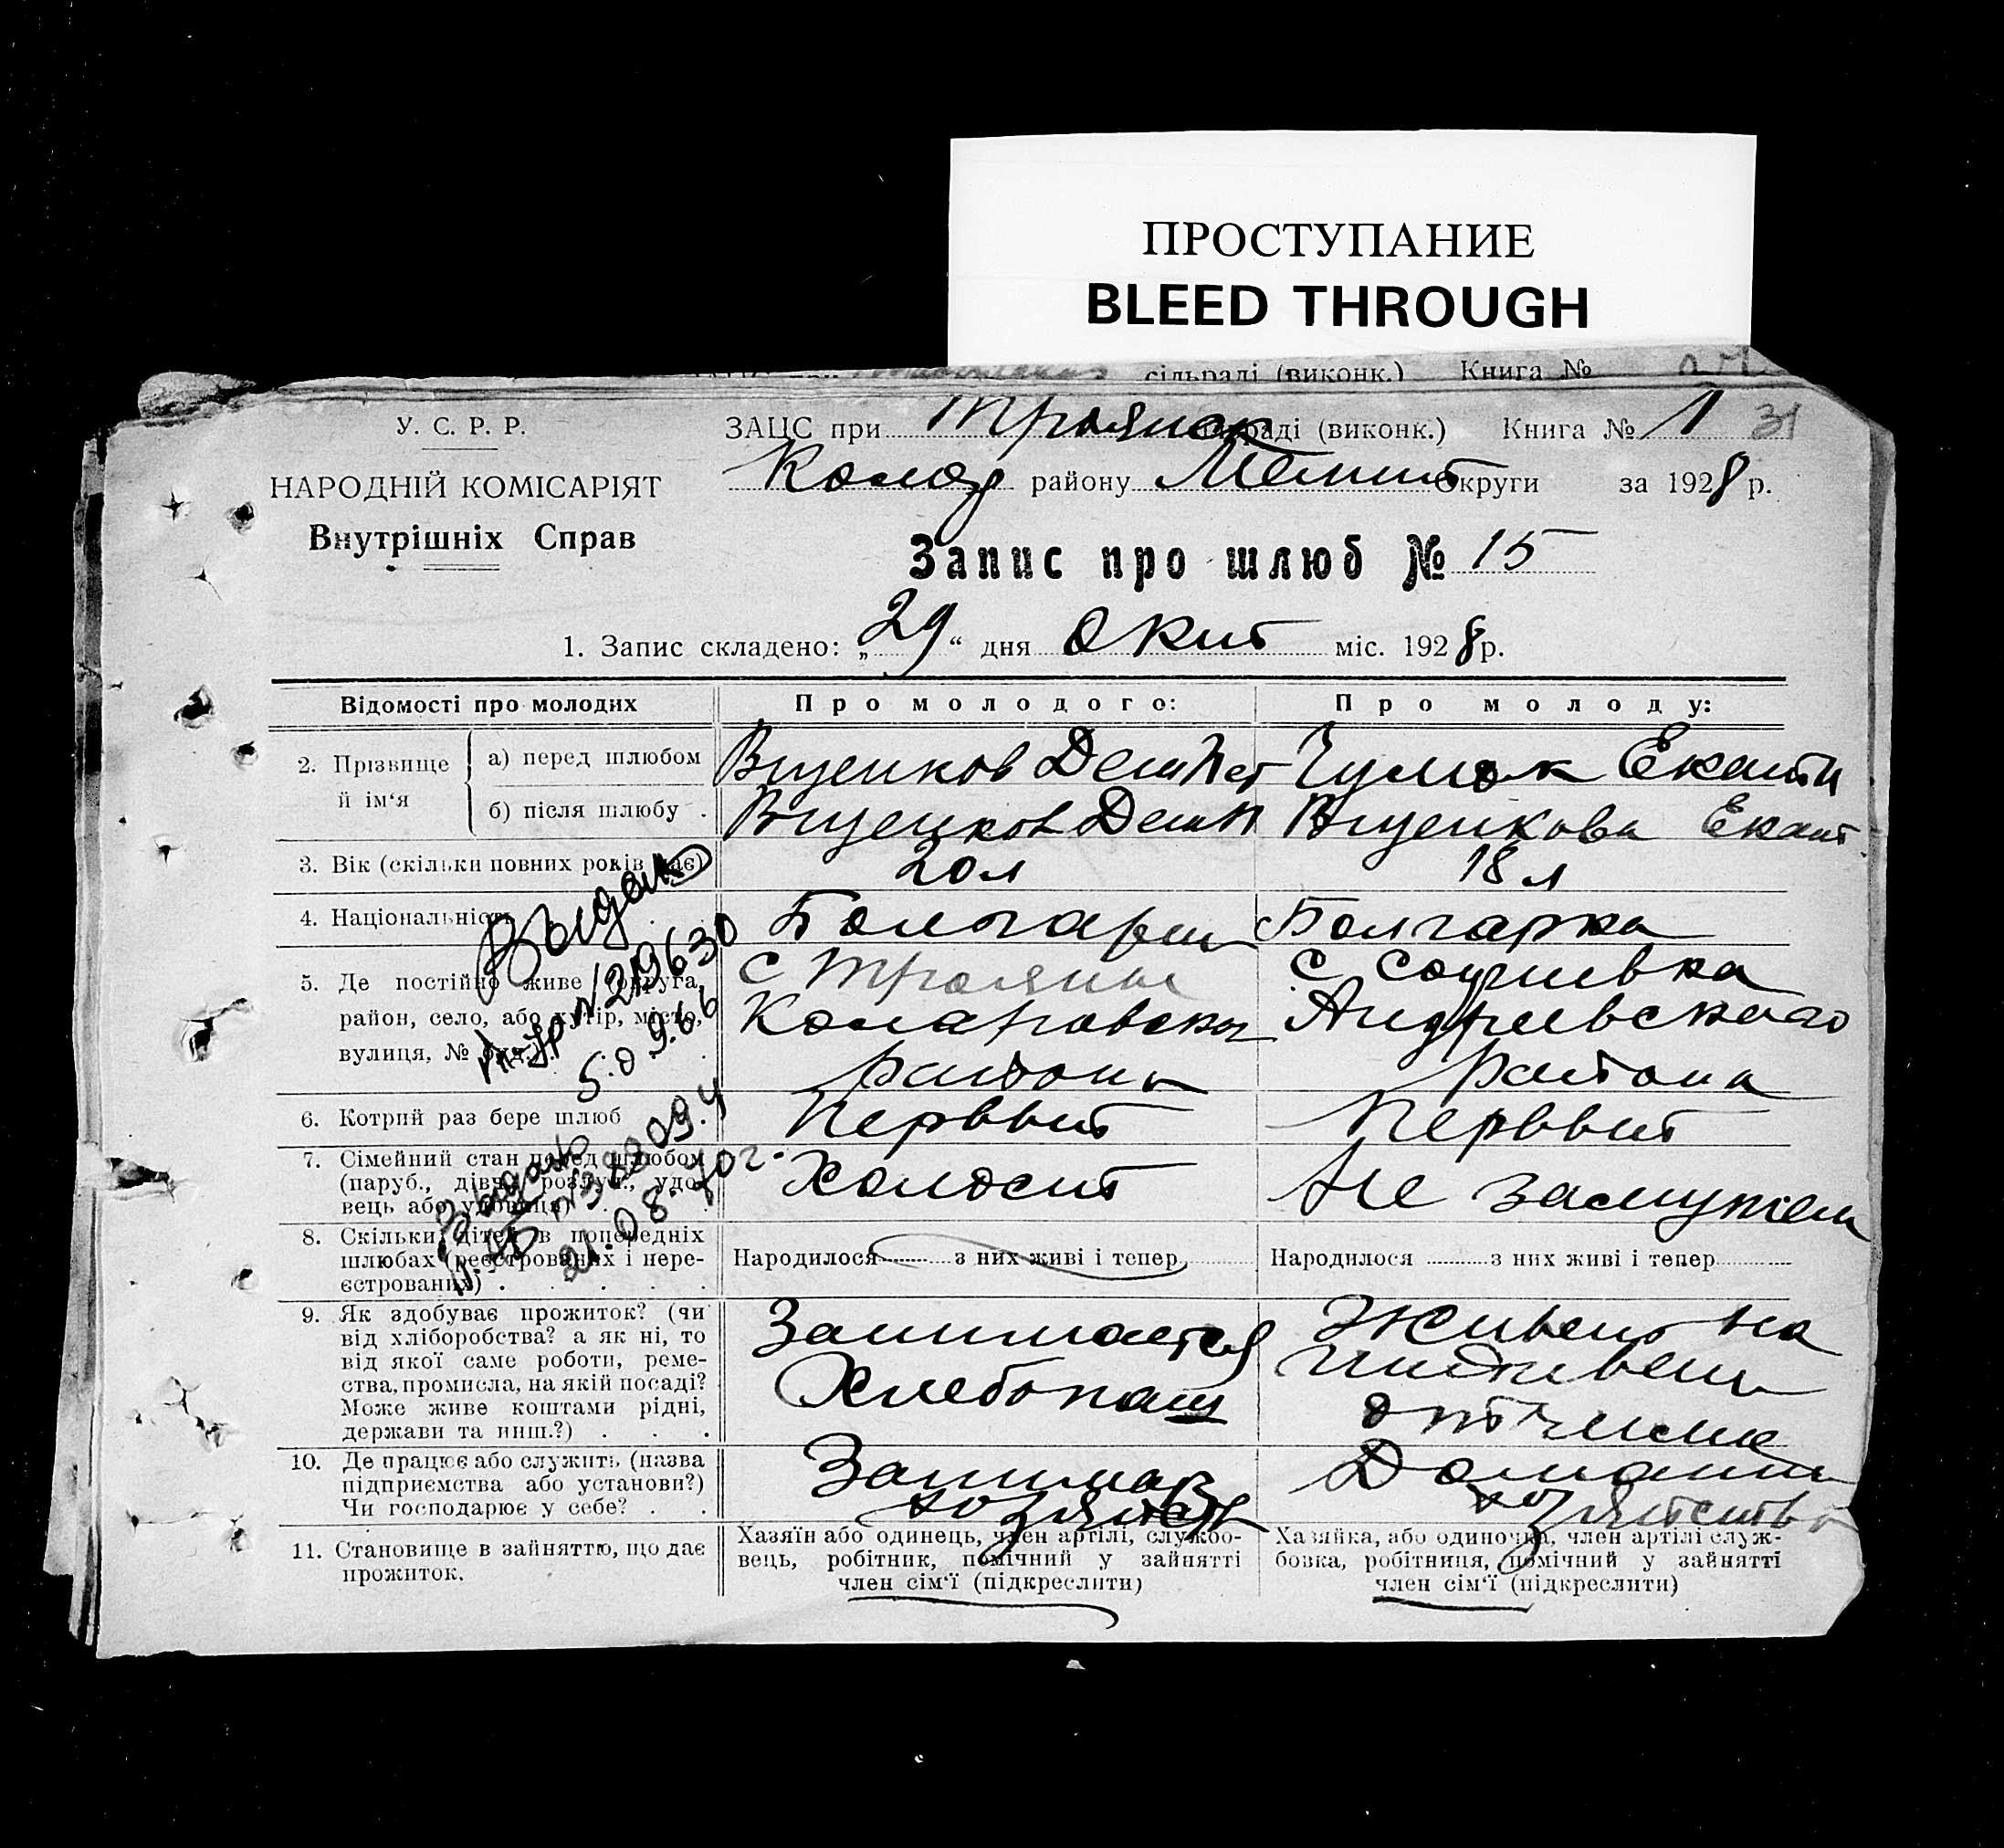 ПРОСТУПАНИЕ
BLEED THROUGH
сільраді (виконк.) Книга №
У. С. Р. Р.
НАРОДНІЙ КОМІСАРІЯТ
Внутрішніх Справ
ЗАЦС при Троянск сільраді (виконк.) Книга № 1 31
Комар району Мелит Округи за 1928 р.
Запис про шлюб № 15
1. Запис складено: „29“ дня Окит міс. 1928 р.
Відомості про молодих
Про молодого:
Про молоду:
2. Прізвище й ім‘я
а) перед шлюбом
б) після шлюбу .
3. Вік (скільки повних років має)
20 л
18 л
4. Національність
Болгарин
Болгарка
5. Де постійно живе (округа,
район, село, або хутір, місто,
вулиця, № буд.) .
с Трояны
Комаровского
района
с Софиевка
Андриевского
района
6. Котрий раз бере шлюб
Перввит
Перввит
7. Сімейний стан перед шлюбом
(паруб., дівч., розлуч., удо-
вець або удовиця) .
Холост
Не замужем
8. Скільки дітей в попередніх
шлюбах (реєстрованих і нере-
єстрованих) .
Народилося з них живі і тепер
Народилося з них живі і тепер
9. Як здобуває прожиток? (чи
від хліборобства? а як ні, то
від якої саме роботи, реме-
ства, промисла, на якій посаді?
Може живе коштами рідні,
держави та инш.?) . . .
Занимается
Хлебопаш
Живет на
иждивении
10. Де працює або служить (назва
підприємства або установи?)
Чи господарює у себе? . .
Занимає
хозяйств
Домашни
хозяйство
11. Становище в зайняттю, що дає
прожиток.
Хазяїн або одинець, член артілі, службо-
вець, робітник, помічний у зайнятті
член сім‘ї (підкреслити)
Хазяйка, або одиночка, член артілі служ-
бовка, робітниця, помічний у зайнятті
член сім‘ї (підкреслити)
Выдан
219630
5.09.66
Выдано
21.08.70г.